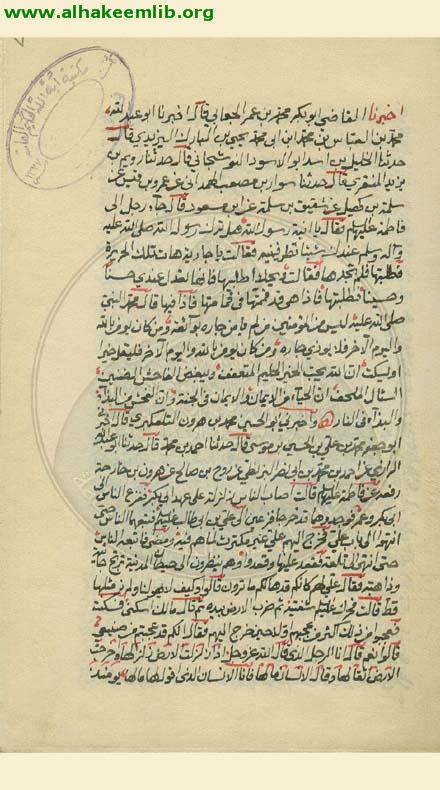 www.alhakeemlib.org
اخبرنا القاضي ابو بكر محمد بن عمر الجعابي قال اخبرنا ابو عبد الله
محمد بن العباس بن محمد بن ابي محمد يحيى بن المبارك اليزيدي قال
حدثنا الخليل بن اسد ابو الاسود النوشجاني قال حدثنا رويم بن
يزيد المنقري قال حدثنا سوار بن مصعب الهمداني عن عمرو بن قيس عن
سلمة بن كهيل عن شقيق بن سلمة عن ابن مسعود قال جاء رجل الى
فاطمة عليها السلام فقال يا ابنة رسول الله هل ترك رسول الله صلى الله عليه
وآله وسلم عندك شيئا فقالت يا جارية هات تلك الحريرة
فطلبتها فلم تجدها فقالت ويحك اطلبيها فانها تعدل عندي حسنا
وحسينا فطلبتها فاذا هي قد قمتها في قمامتها فاذا فيها قال محمد النبي
صلى الله عليه ليس من المؤمنين من لم يامن جاره بوائقه ومن كان يؤمن بالله
واليوم الآخر فلا يؤذي جاره ومن كان يؤمن بالله واليوم الآخر فليقل خيرا
او ليسكت ان الله يحب الخير الحليم المتعفف ويبغض الفاحش
السئال الملحف ان الحياء من الايمان والايمان في الجنة وان الفحش من البذاء
والبذاء في النار واخبرني ابو الحسين محمد بن هرون التلعكبري قال
ابو جعفر محمد بن علي بن الحسين بن موسى قال حدثنا احمد بن محمد قال حدثنا
الرازي عن احمد بن محمد بن ابي نصر البزنطي عن روح بن صالح عن هرون بن خارجة
رفعه عن فاطمة عليها السلام قالت اصاب الناس زلزلة على عهد ابي بكر ففزع الناس الى
ابي بكر وعمر فوجدوهما قد خرجا فزعين الى علي بن ابي طالب عليه السلام فتبعهما الناس حتى
انتهوا الى باب علي فخرج اليهم علي غير مكترث لما هم فيه ومضى فاتبعه الناس
حتى انتهى الى تلعة فقعد عليها وقعدوا وهم ينظرون الى حيطان المدينة ترتج جائية
وذاهبة فقال علي لهم كانكم قد هالكم ما ترون قالوا وكيف لا يهولنا ولم نر مثلها
قط قالت فحرك عليه السلام شفتيه ثم ضرب الارض بيده ثم قال مالك اسكني فسكنت
فعجبوا من ذلك اكثر من عجبهم اولا حين خرج اليهم فقال لكم قد عجبتم من صنيعي
قالوا نعم قال انا الرجل الذي قال الله عز وجل اذا زلزلت الارض زلزالها واخرجت
الارض اثقالها وقال الانسان مالها فانا الانسان الذي اقول لها مالها يومئذ